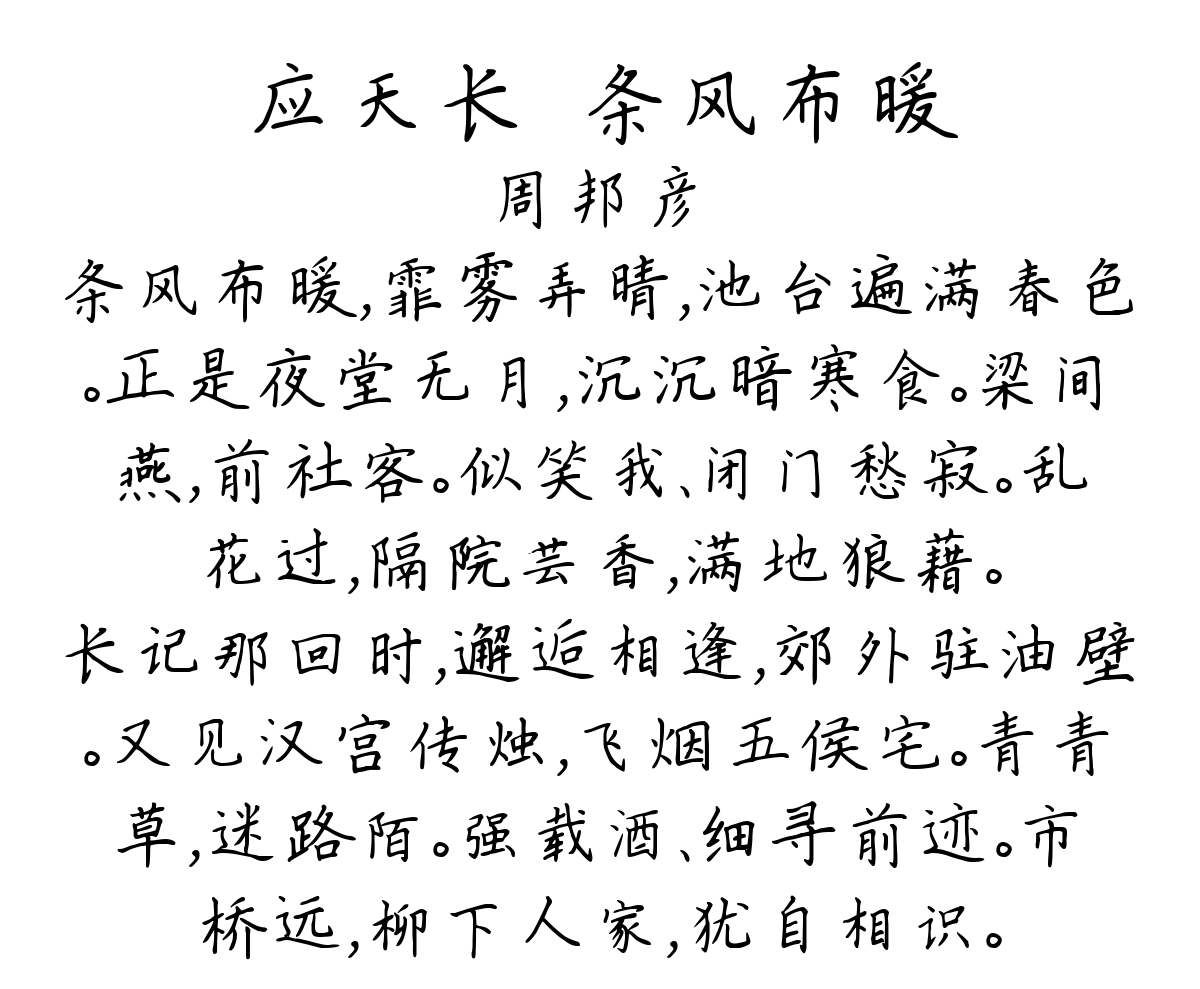 应天长 条风布暖
周邦彦
条风布暖,霏雾弄晴,池台遍满春色
。正是夜堂无月,沉沉暗寒食。梁间
燕,前社客。似笑我、闭门愁寂。乱
花过,隔院芸香,满地狼藉。
长记那回时,邂逅相逢,郊外驻油壁
。又见汉宫传烛,飞烟五侯宅。青青
草,迷路陌。强载酒、细寻前迹。市
桥远,柳下人家,犹自相识。